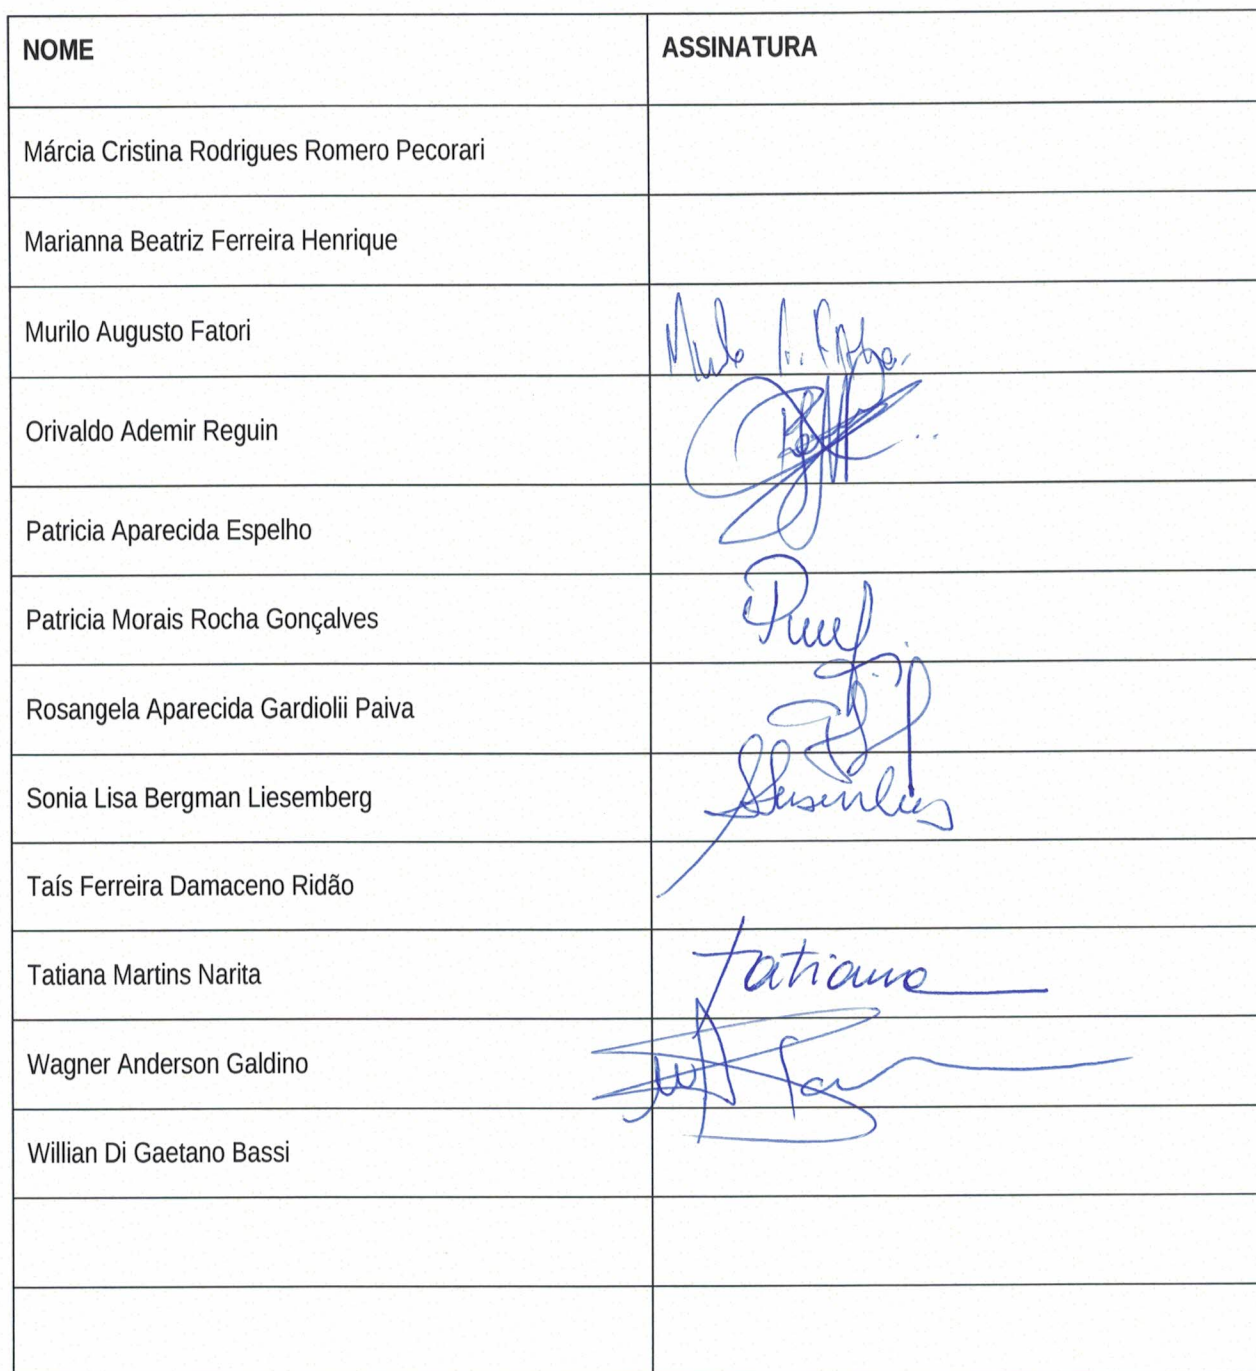 NOME ASSINATURA
Márcia Cristina Rodrigues Romero Pecorari
Marianna Beatriz Ferreira Henrique
Murilo Augusto Fatori
Orivaldo Ademir Reguin
Patricia Aparecida Espelho
Patricia Morais Rocha Gonçalves
Rosangela Aparecida Gardiolii Paiva
Sonia Lisa Bergman Liesemberg
Taís Ferreira Damaceno Ridão
Tatiana Martins Narita Tatiana
Wagner Anderson Galdino
Willian Di Gaetano Bassi